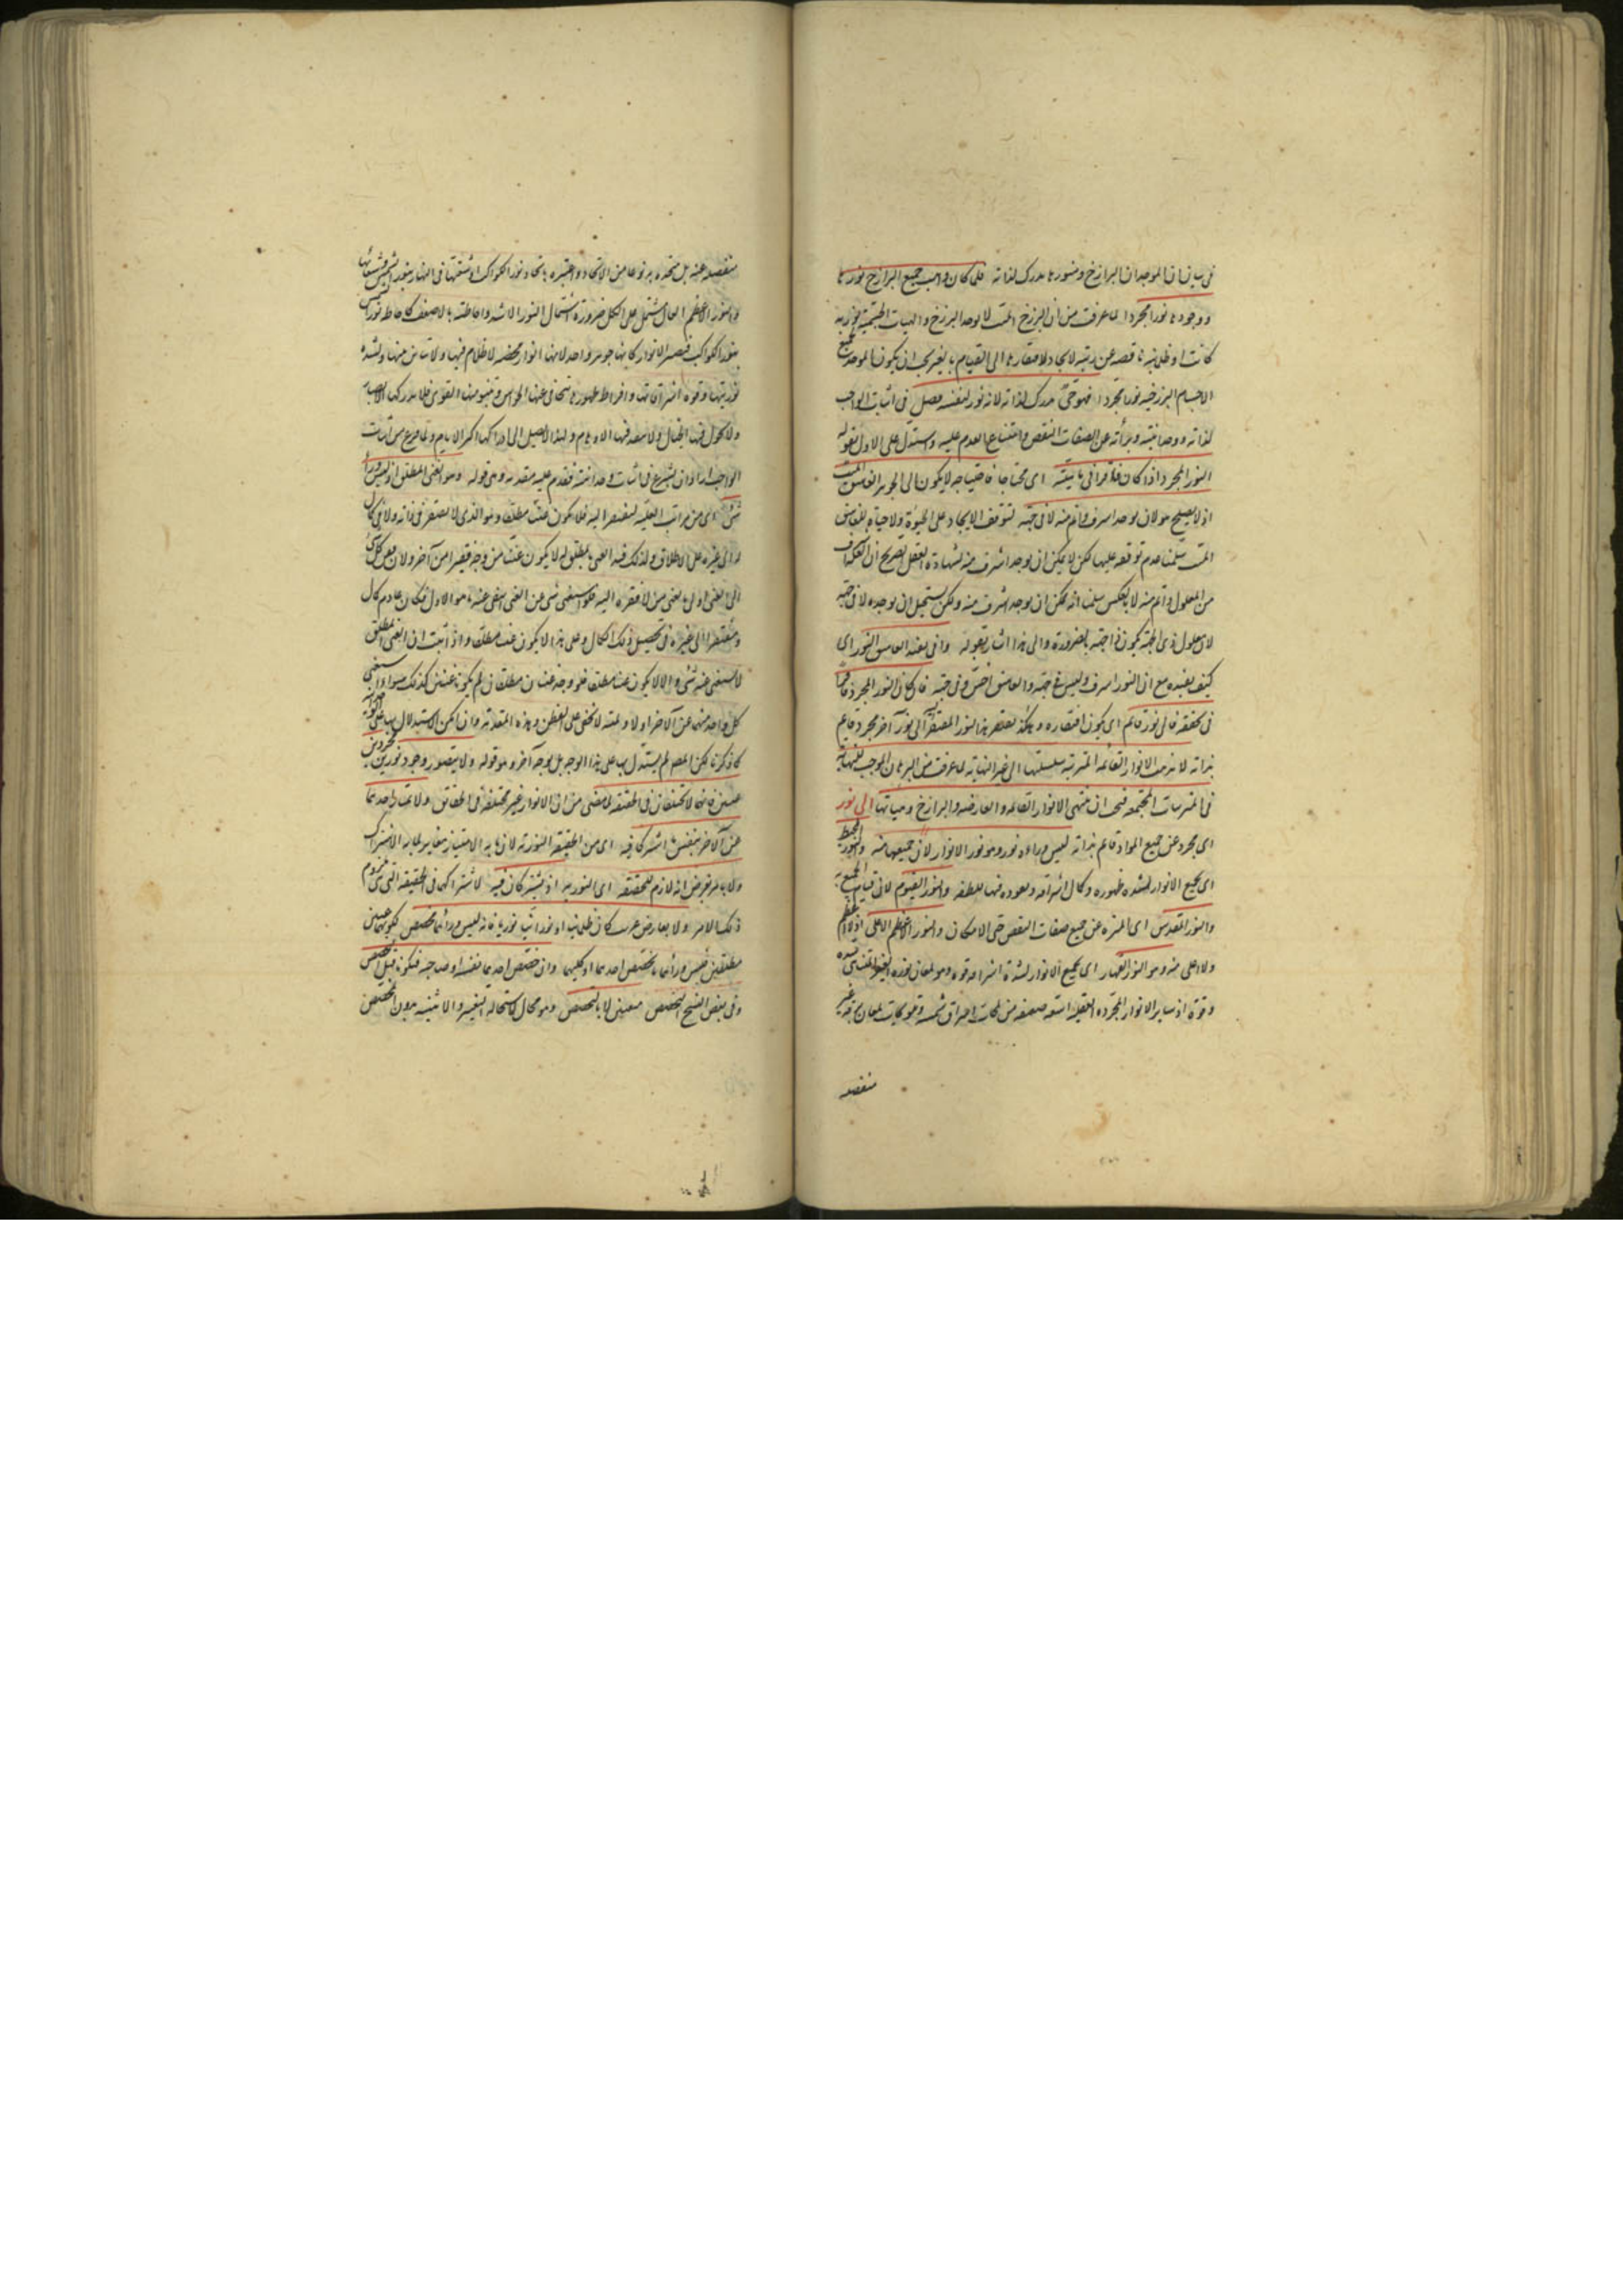 فى بيان ان الموجد ان البرازخ ومنورها مدرك لذاته فلما كان واهب جميع البرازخ نورها
ووجودها نورا مجردا لما عرفت من ان البرزخ الميت لا يوجد البرزخ والهيات الجسمية نورية
كانت او ظلمانية ناقصة عن رتبة الايجاد لافتقارها الى القيام بالغير يجب ان يكون الموجد لجميع
الاجسام البرزخية نورا مجردا فهو حى مدرك لذاته لانه نور لنفسه فصل فى اثبات الواجب
لذاته ووحدانيته وبرأته عن الصفات النقص وامتناع العدم عليه واستدل على الاول بقوله
النور المجرد اذا كان فاقرا فى ماهيته اى محتاجا فاحتياجه لا يكون الى الجوهر الغاسق الميت
اذ لا يصلح هو لان يوجد اشرف واتم منه لا فى جهة لتوقف الايجاد على الحيوة ولا حياة للغاسق
الميت سلمنا عدم توقفه عليها لكن لا يمكن ان يوجد اشرف منه لشهادة العقل الصريح ان العلة اشرف
من المعلول واتم منه لا بالعكس سلمنا انه يمكن ان يوجد اشرف منه ولكن يستحيل ان يوجده لا فى جهة
لان معلول ذى الجهة يكون ذا جهة بالضرورة والى هذا اشار بقوله وانى يفيد الغاسق النور اى
كيف يفيده مع ان النور اشرف وليس فى جهة والغاسق اخس وفى جهة فان كان النور المجرد فاقرا
فى تحققه فالى نور قائم اى يكون افتقاره وهكذا يفتقر هذا النور المفتقر اليه الى نور آخر مجرد قائم
بذاته لا يذهب الانوار القائمة المترتبة سلسلتها الى غير النهاية لما عرفت من البرهان الموجب للنهاية
فى المترتبات المجتمعة فيجب ان ينتهى الانوار القائمة والعارضة والبرازخ وهيأتها الى نور
اى مجرد عن جميع المواد قائم بذاته ليس وراءه نور وهو نور الانوار لان جميعها منه والنور المحيط
اى بجميع الانوار لشدة ظهوره وكمال اشراقه ونفوذه فيها للطفه والنور القيوم لان قيام الجميع به
والنور المقدس اى المنزه عن جميع صفات النقص حتى الامكان والنور الاعظم الاعلى اذ لا اعظم
ولا اعلى منه وهو النور القهار اى بجميع الانوار لشدة اشراقه وقوة ولمعان نوره الغير المتناهى شدة
وقوة اذ ساير الانوار المجردة العقلية اشعة ضعيفة من لمحات اشراق شمسه وتموجات لمعان برقه غير
منفصلة
منفصلة عنه بل متحدة به نوعا من الاتحاد واعتبره باتحاد نور الكواكب واشعتها فى النهار بنور الشمس وشعاعها
والنور الاعظم العالى مشتمل على الكل ضرورة اشتمال النور الاشد واحاطته بالاضعف كاحاطة نور الشمس
بنور الكواكب فيصير الانوار كانها جوهر واحد لانها انوار محضة لا ظلام فيها ولا تباين منها ولشدة
نوريتها وقوة اشراقاتها وافراط ظهورها تتخفى عنها الحواس وتنبو منها القوى فلا يدركها الابصار
ولا يجول فيها الخيال ولا ينفذ فيها الاوهام ولهذا لا يصل الى ادراكها اكثر الانام ولما فرغ من اثبات
الواجب اراد ان يشرع فى اثبات وحدانيته فقدم عليه مقدمة وهى قوله وهو الغنى المطلق اذ ليس وراه
شئ اى من مراتب العلية ليفتقر اليه فلا يكون غنيا مطلقا وهو الذى لا يفتقر فى ذاته ولا فى كمال
له الى غيره على الاطلاق ولذلك قيد الغنى بالمطلق لئلا يكون غنيا من وجه فقيرا من آخر ولان فقر كل شئ
الى الغنى اولى بالغنى من لا فقره اليه فلو استغنى شئ عن الغنى انتفى عنه ما هو الاولى فكان عادم كمال
ومفتقرا الى غيره فى تحصيل ذلك الكمال وعلى هذا لا يكون غنيا مطلقا واذا ثبت ان الغنى المطلق
لا يستغنى عنه شئ والا لا يكون غنيا مطلقا فلو وجد غنيان مطلقان لم يكونا غنيين كذلك سواء استغنى
كل واحد منهما عن الآخر اولا ولميته لا تخفى على الفطن وهذه المقدمة وان امكن الاستدلال بها على الوحدانية
كما ذكرنا لكن المصـ لم يستدل بها على هذا الوجه بل بوجه آخر وهو قوله ولا يتصور وجود نورين مجردين
غنيين فانهما لا يختلفان فى الحقيقة لما مضى من ان الانوار غير مختلفة فى الحقائق ولا يمتاز احدهما
عن الآخر بنفس ما اشتركا فيه اى من الحقيقة النورية لان ما به الامتياز مغاير لما به الاشتراك
ولا بامر يفرض انه لازم للحقيقة اى النورية اذ يشتركان فيه لاشتراكهما فى الحقيقة التى هى ملزوم
ذلك الامر ولا بعارض غريب كان ظلمانيا او نورانيا فانه ليس وراءهما مخصص لكونهما غنيين
مطلقين فليس وراءهما ما يخصص احدهما او كليهما وان خصص احدهما نفسه او صاحبه فيكونان قبل التخصيص
وفى بعض النسخ المخصص معينين لا بالمخصص وهو محال لاستحالة التعين والاثنينية بدون المخصص